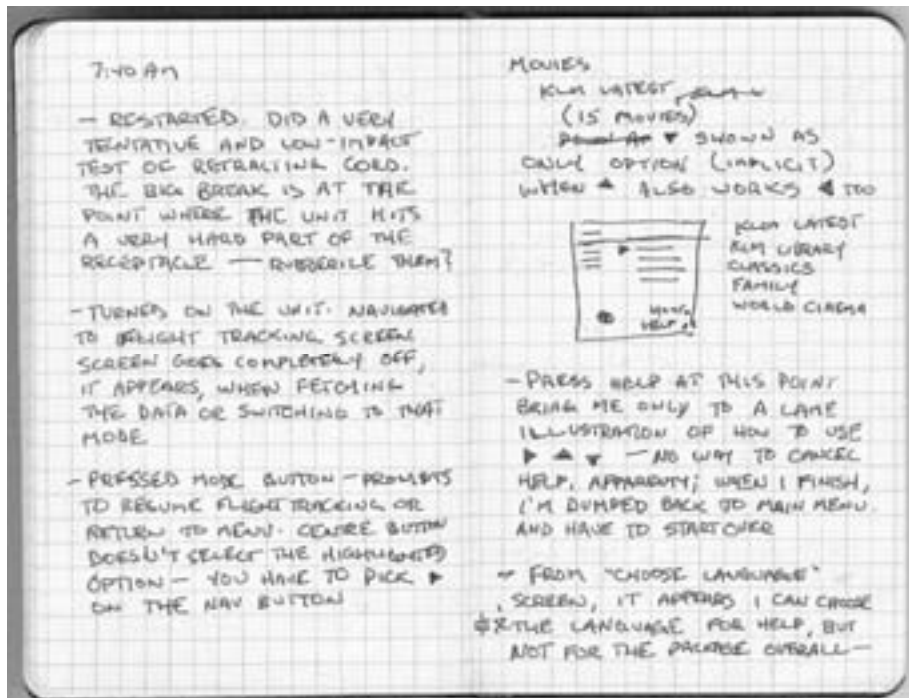 7:40 AM
— RESTARTED. DID A VERY
TENTATIVE AND LOW-IMPACT
TEST OF RETRACTING CORD.
THE BIG BREAK IS AT THE
POINT WHERE THE UNIT HITS
A VERY HARD PART OF THE
RECEPTACLE — THEM?
- TURNED ON THE UNIT. NAVIGATED
TO FLIGHT TRACKING SCREEN
SCREEN GOES COMPLETELY OFF,
IT APPEARS, WHEN FETCHING
THE DATA OR SWITCHING TO THAT
MODE
- PRESSED MODE BUTTON — PROMPTS
TO RESUME FLIGHT TRACKING OR
RETURN TO MENU. CENTRE BUTTON
DOESN'T SELECT THE HIGHLIGHTED
OPTION — YOU HAVE TO PICK ▶
ON THE NAV BUTTON
MOVIES
KLM LATEST
(15 MOVIES)
▼ SHOWN AS
ONLY OPTION (IMPLICIT)
WHEN ▲ ALSO WORKS ◀ TOO
HELP
KLM LATEST
KLM LIBRARY
CLASSICS
FAMILY
WORLD CINEMA
- PRESS HELP AT THIS POINT
BRING ME ONLY TO A LAME
ILLUSTRATION OF HOW TO USE
▶ ▲ ▼ — NO WAY TO CANCEL
HELP, APPARENTLY; WHEN I FINISH,
I'M DUMPED BACK TO MAIN MENU.
AND HAVE TO START OVER
- FROM "CHOOSE LANGUAGE"
SCREEN, IT APPEARS I CAN CHOOSE
THE LANGUAGE FOR HELP, BUT
NOT FOR THE PACKAGE OVERALL —